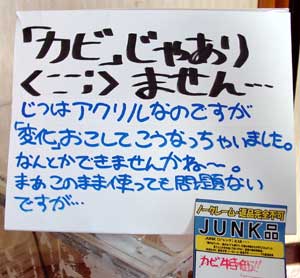 「カビ」じゃあり
<--;> ません…
じつはアクリルなのですが
「変化」おこしてこうなっちゃいました。
なんとかできませんかね〜。
まあこのまま使っても問題ない
ですが…
ノークレーム・返品完全不可
JUNK品
カビ特価!!